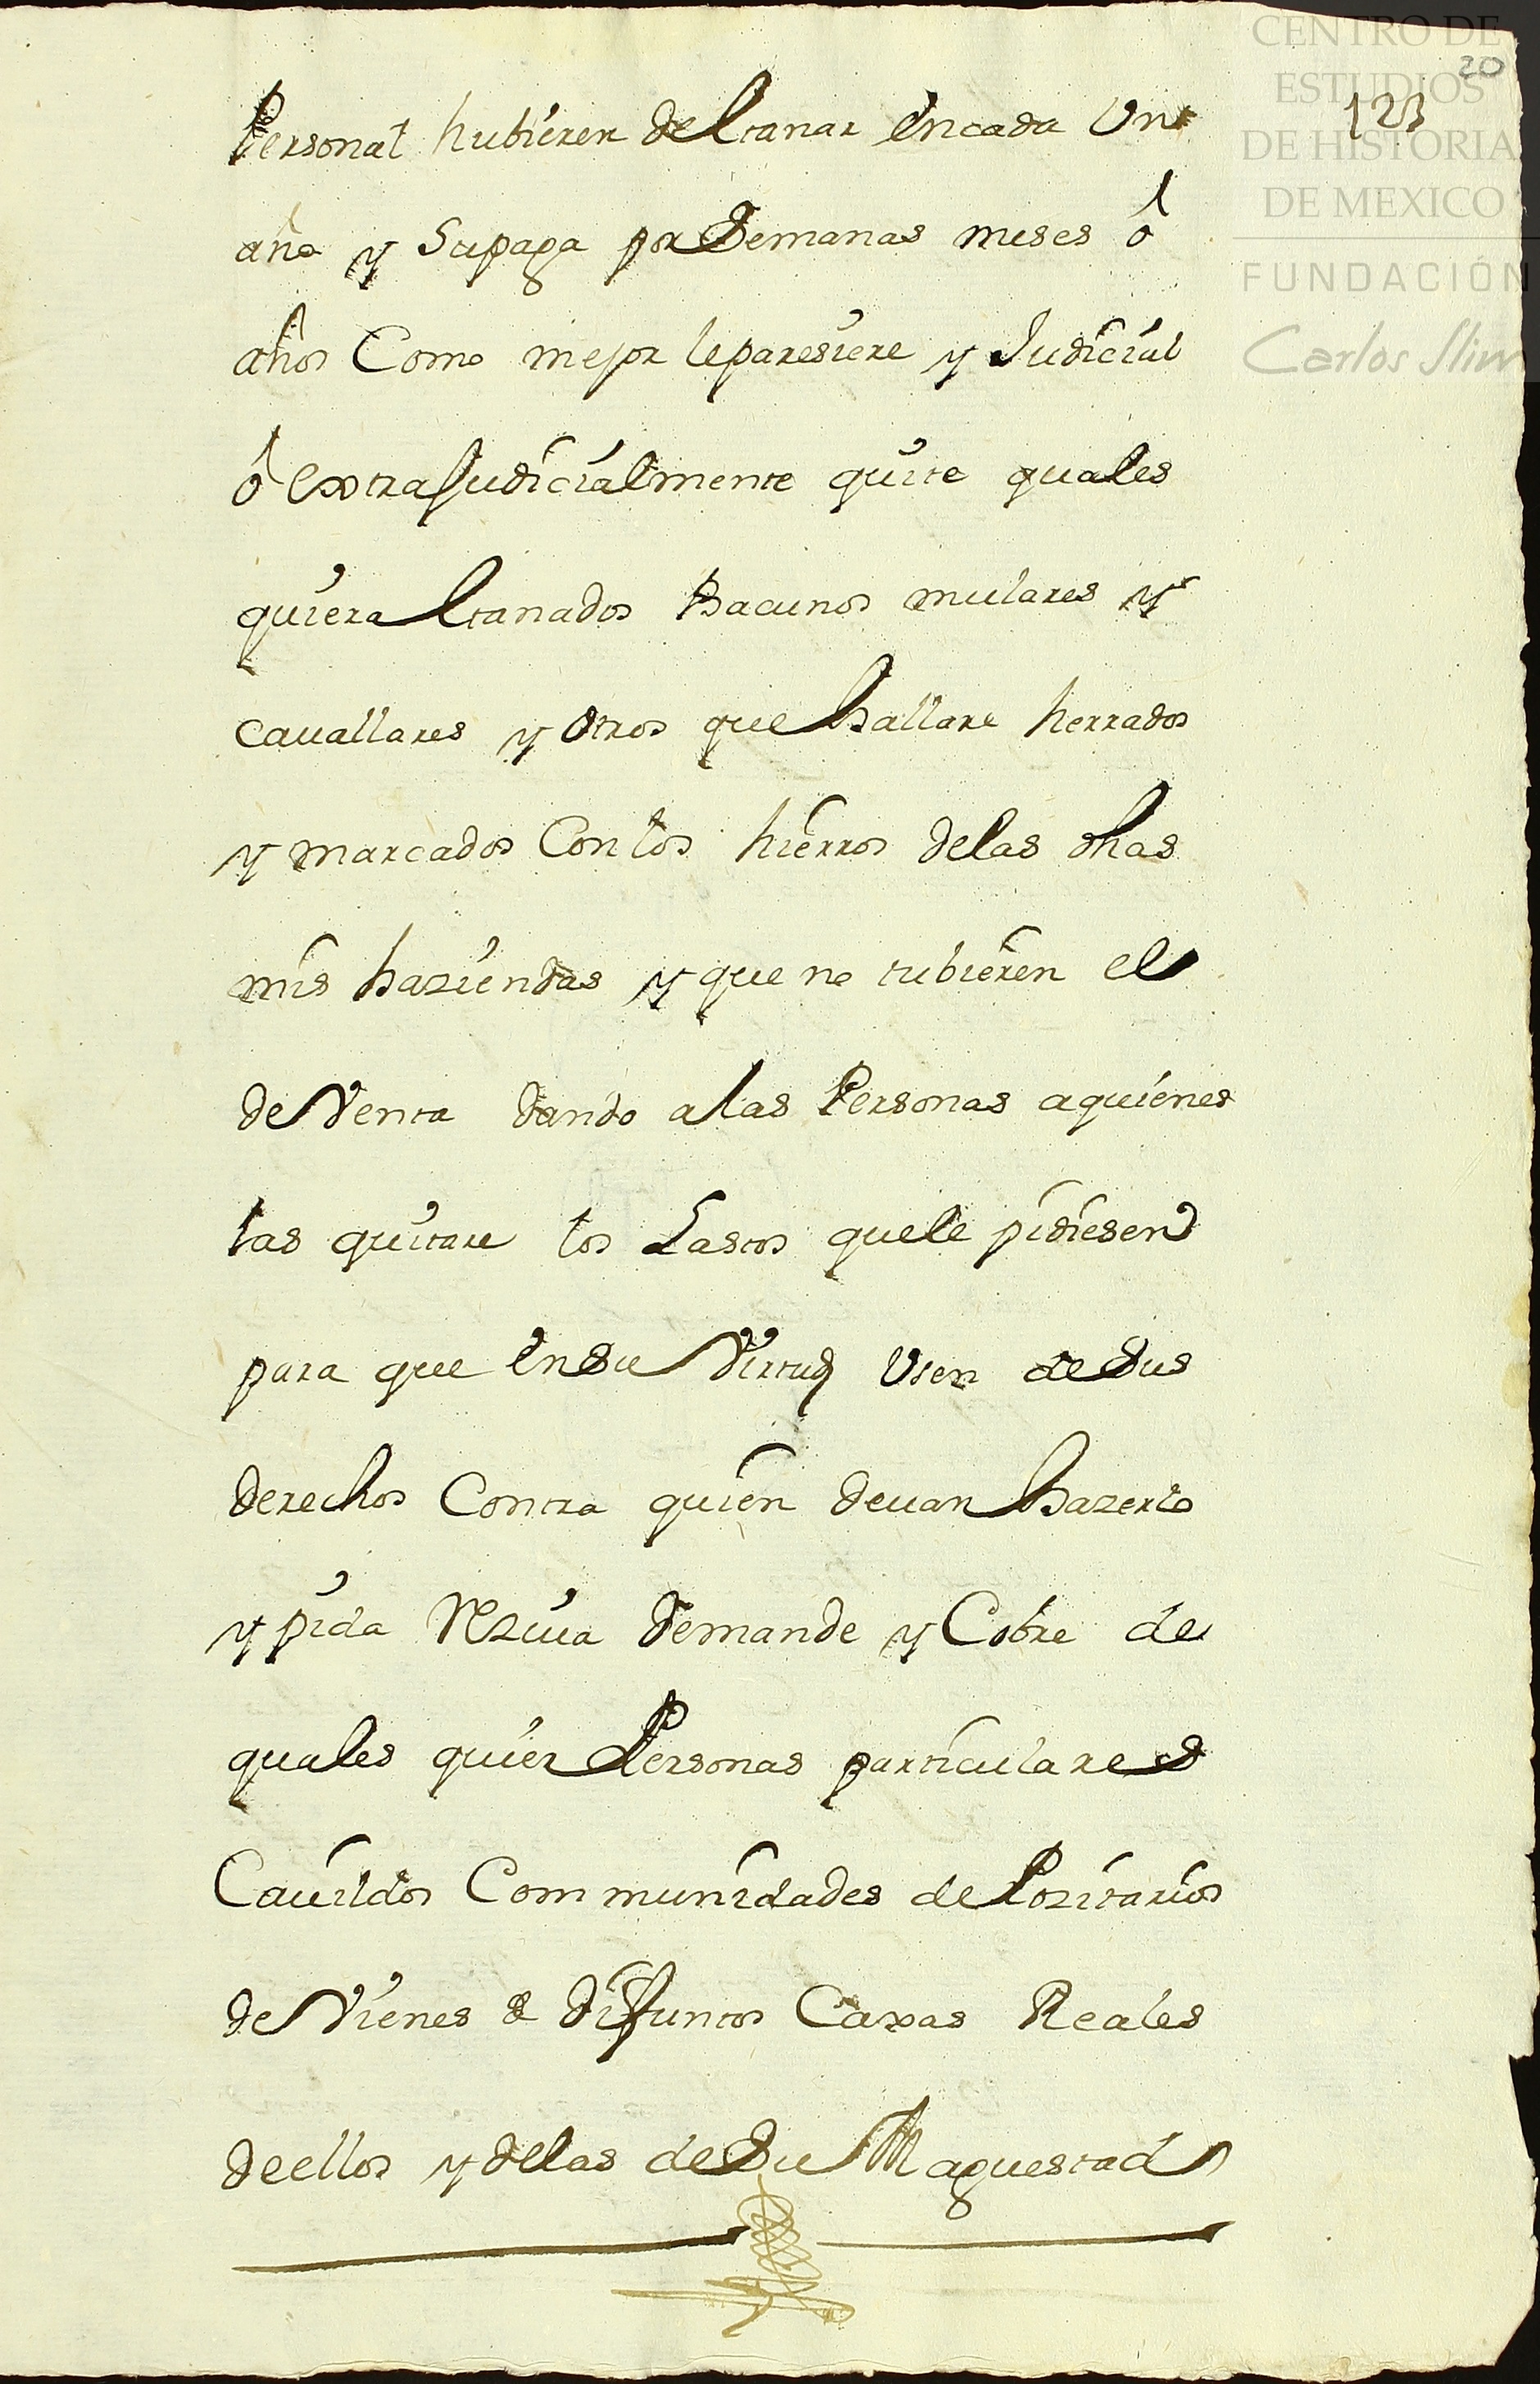 CENTRO DE
ESTUDIOS
DE HISTORIA
DE MEXICO
FUNDACIÓN
Carlos Slim
20
123
Personal hubieren de Ganar en cada Un
año y Su paga por Semanas meses ô
años Como mejor le paresiere y Judicial
ô extraJudicialmente quite quales
quiera Ganados Bacunos mulares y
cauallares y otros que hallare herrados
y marcados Con los hierros de las dhas
mis haziendas y que no tubieren el
de Venta dando a las Personas a quienes
las quitare los Lastos que le pidiesen
para que en su Virtud Usen de Sus
derechos Contra quien deuan hazerlo
y pida Rziua demande y Cobre de
quales quier Personas particulares
Cauildos Communidades depozitarios
de Vienes de difuntos Caxas Reales
de ellos y de las de Su Maguestad